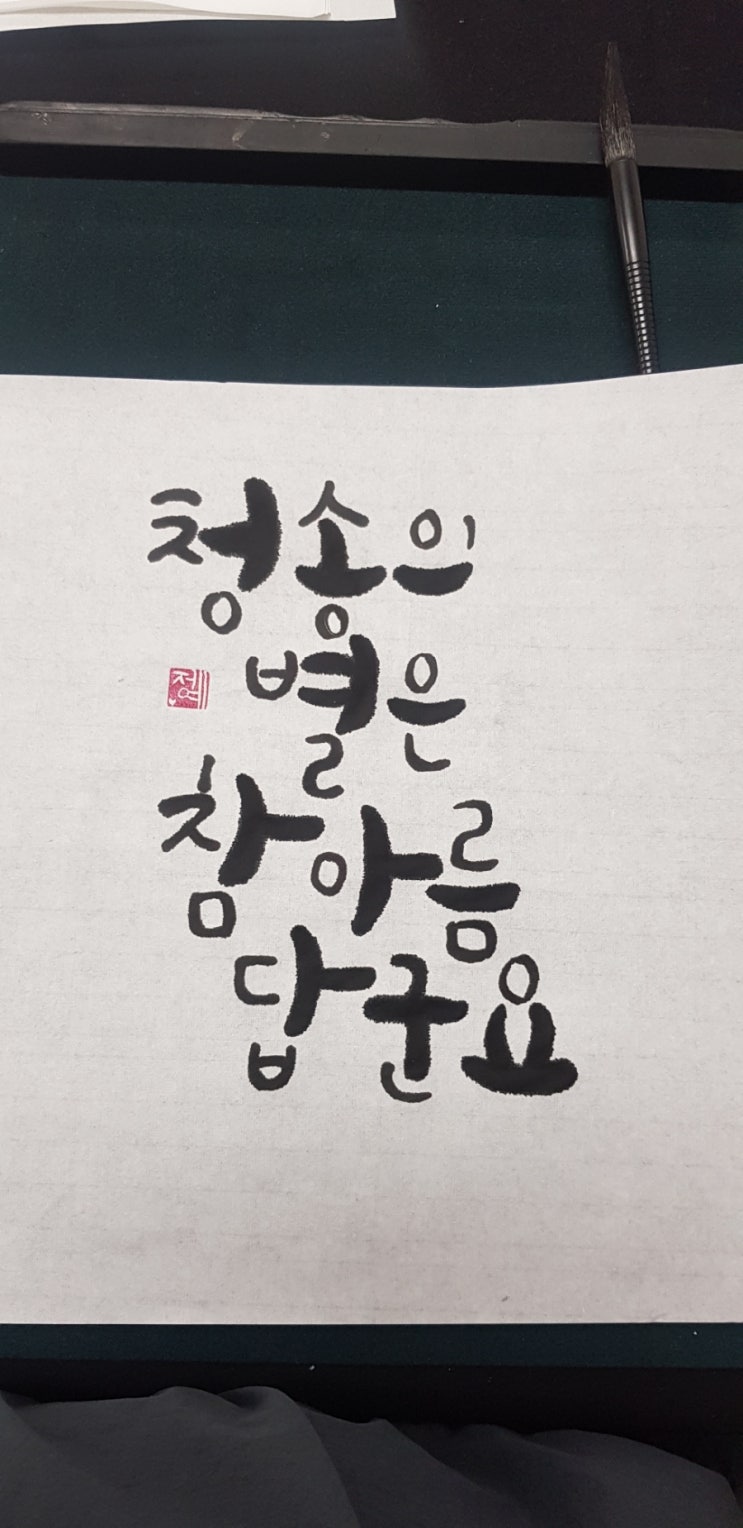 청송의
별은
참아름
답군요